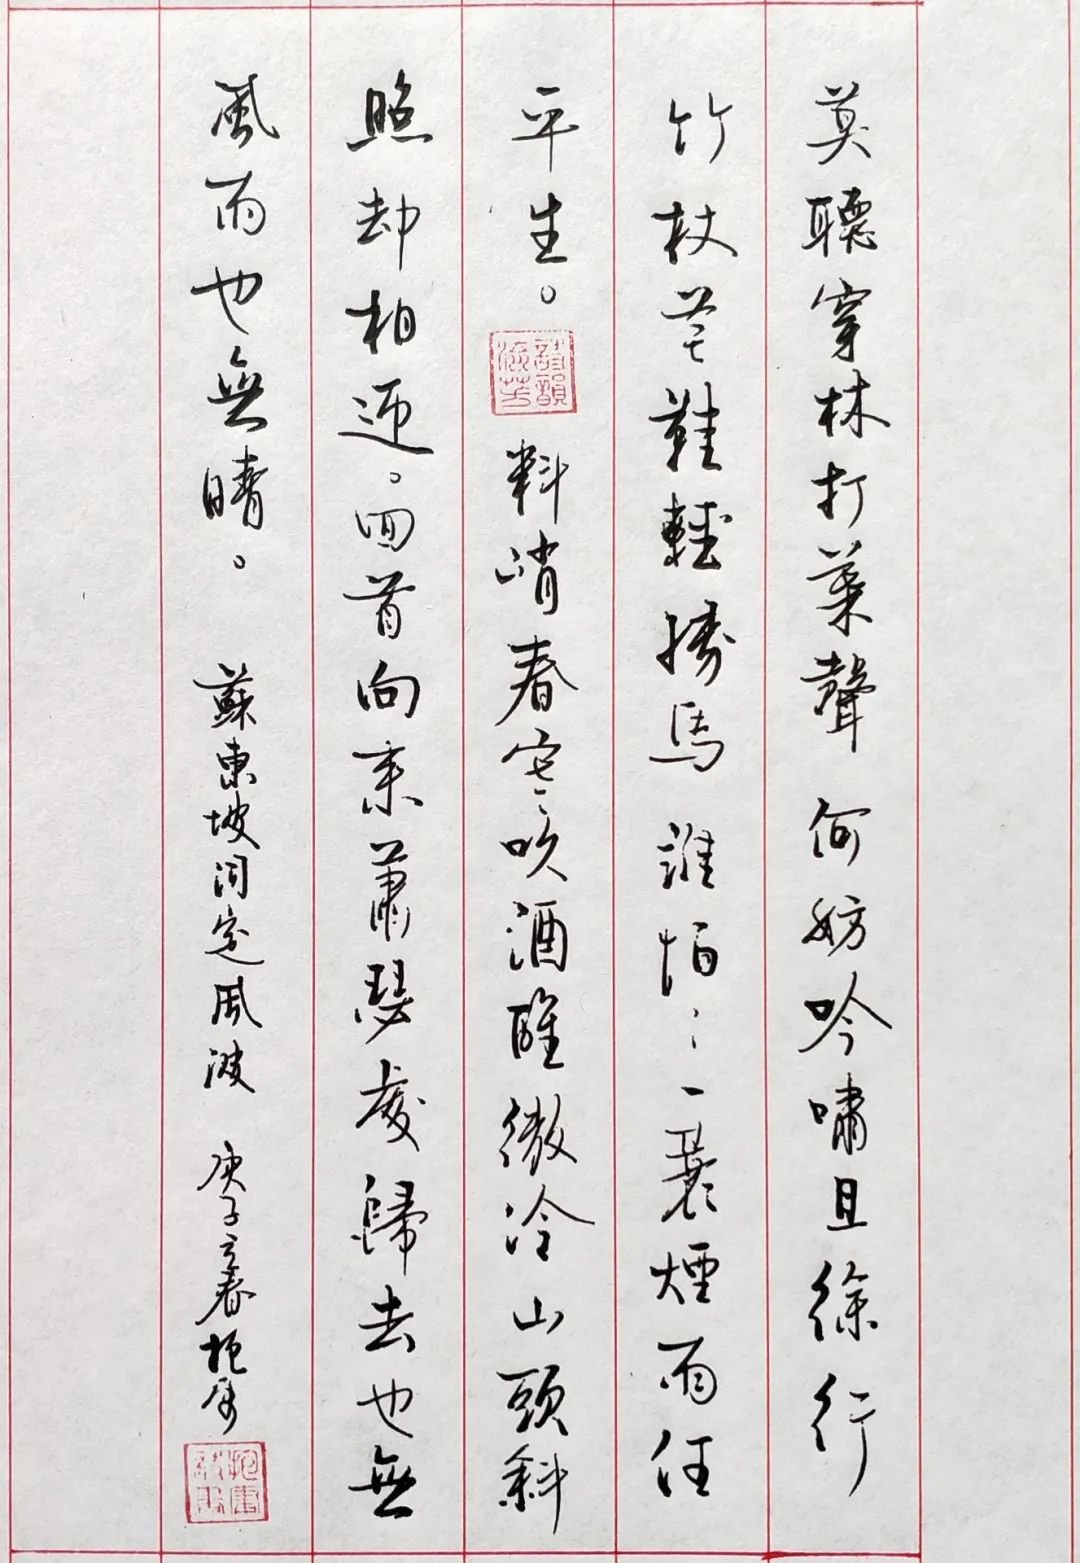 莫聽穿林打葉聲 何妨吟嘯且徐行
竹杖芒鞋輕勝馬 誰怕：一蓑煙雨任
平生。 料峭春寒吹酒醒微冷山頭斜
照却相迎。回首向来蕭瑟處歸去也無
風雨也無晴。 蘇東坡詞定風波 庚子立春抱
詩韻流芳